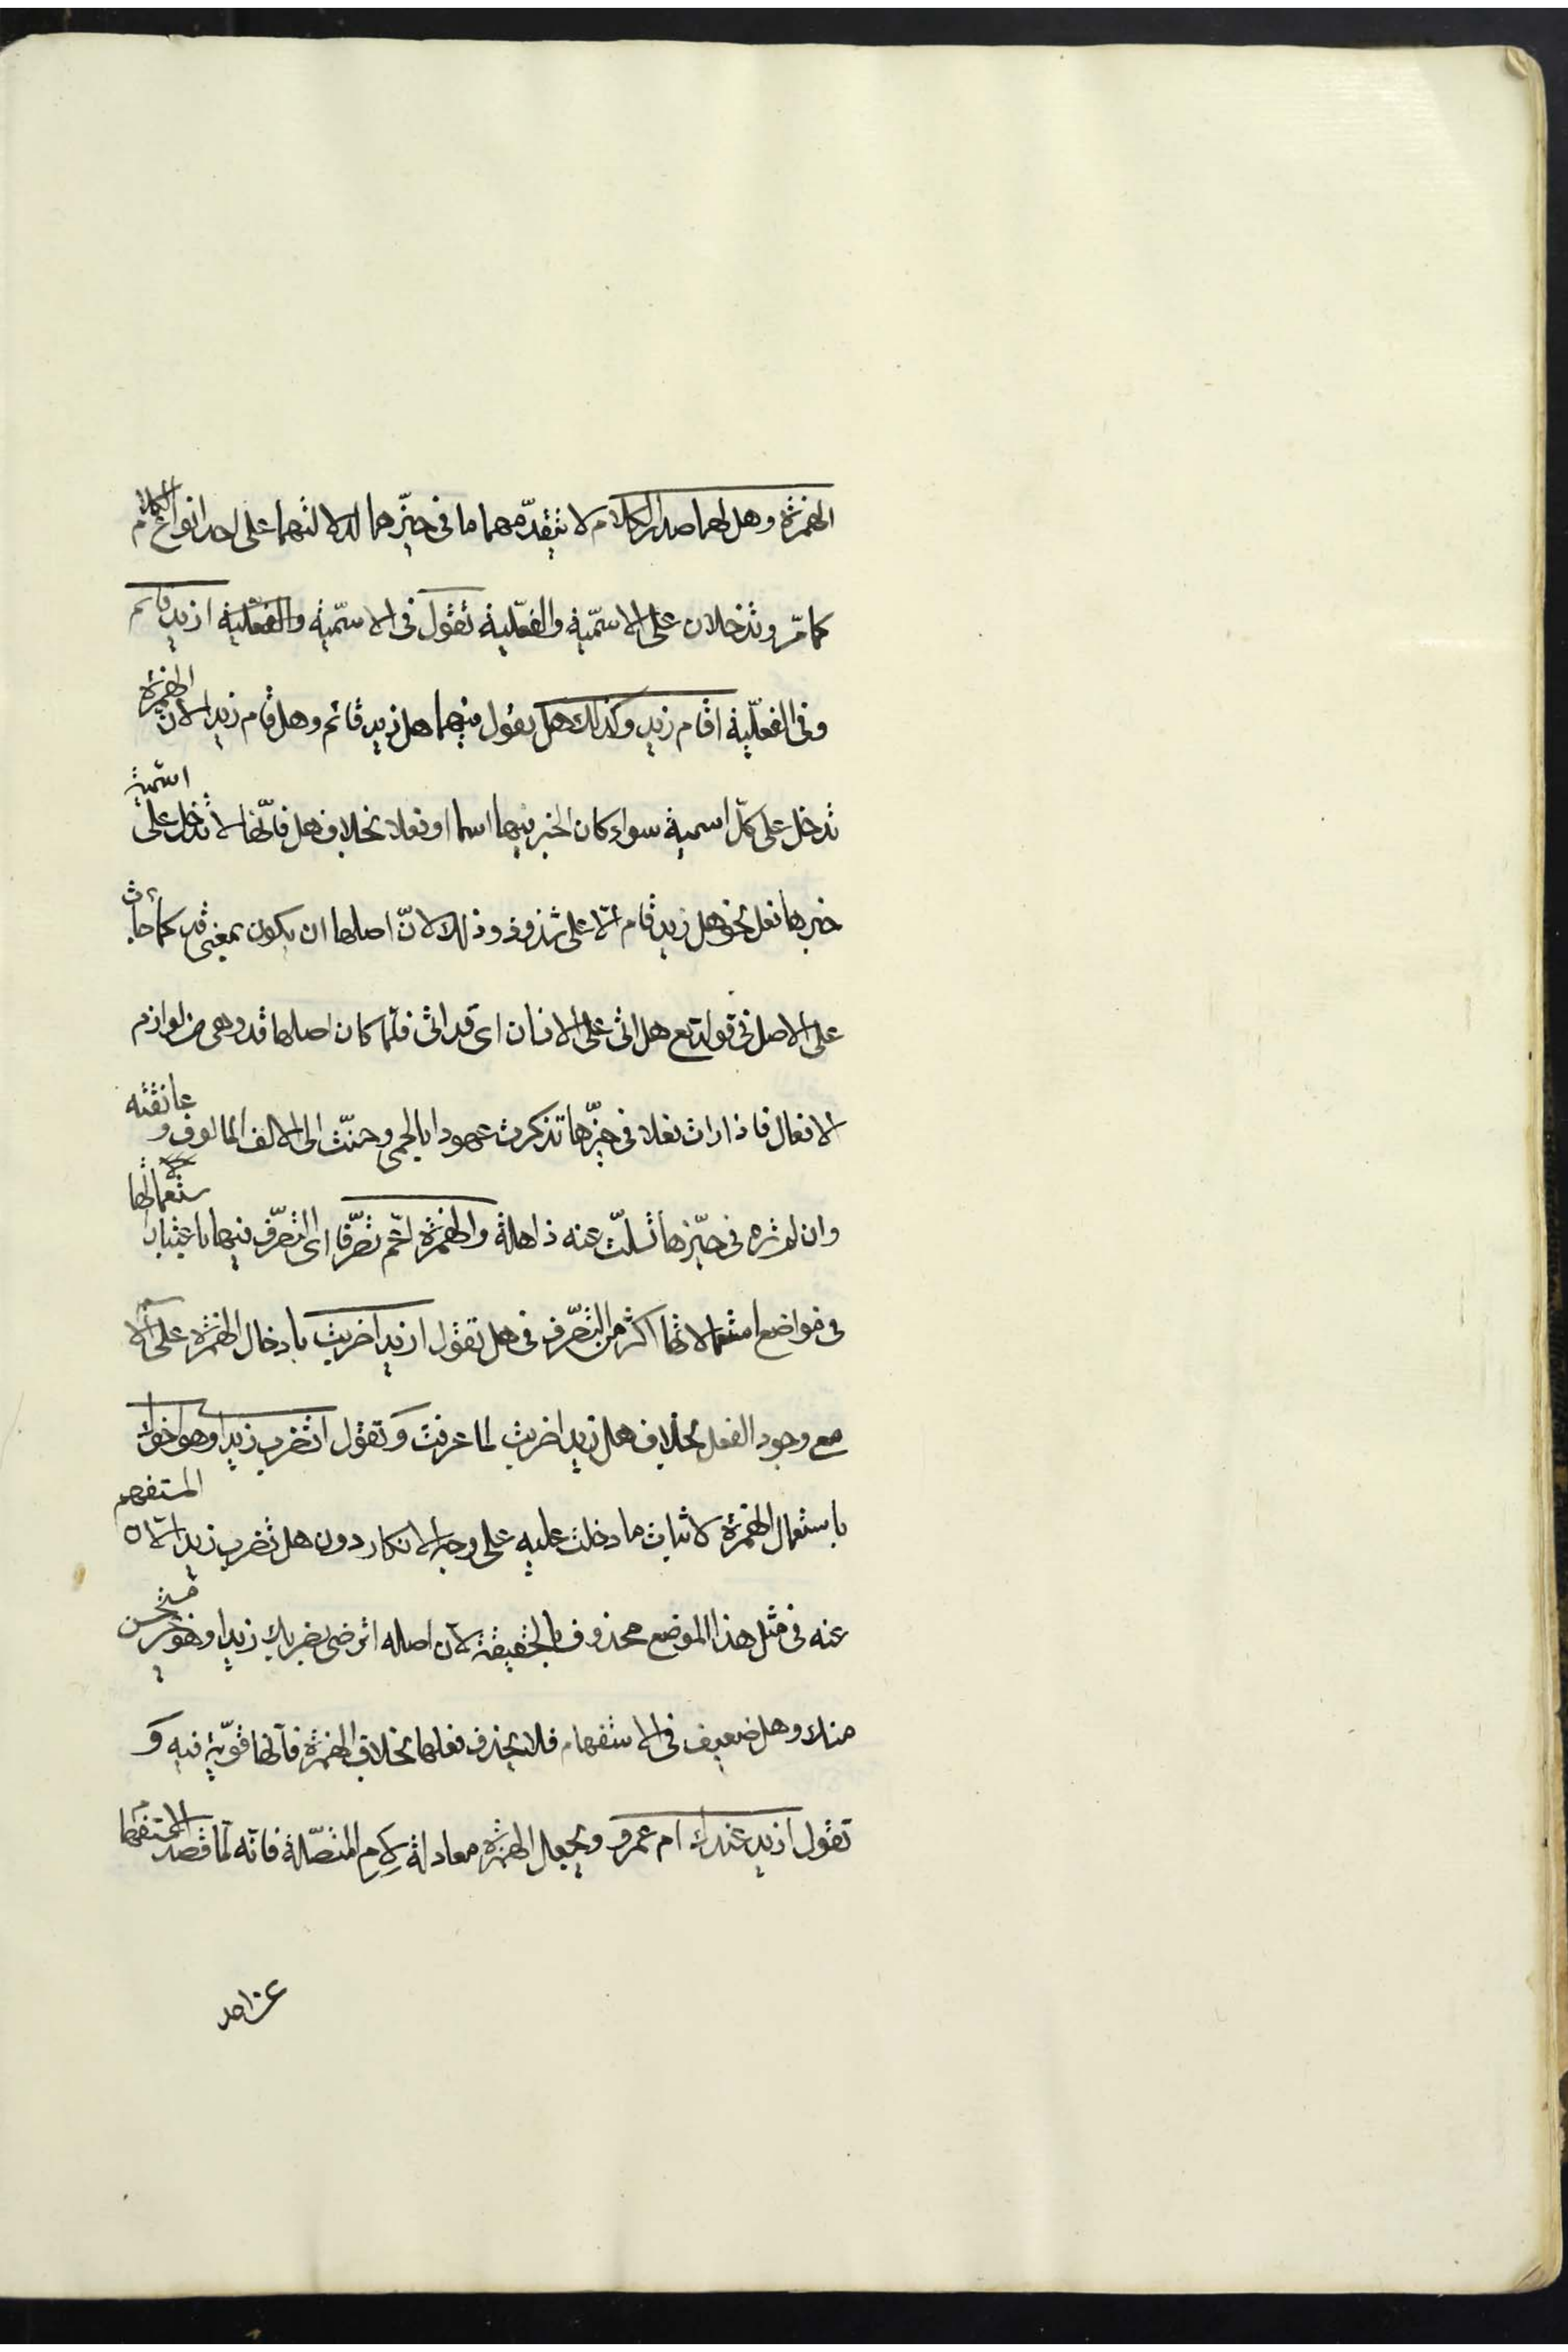 الهمزة وهل لهما صدر الكلام لا يتقدّمهما ما فى حيّزهما لدلالتهما على احد انواع الكلام
كما مرّ وتدخلان على الاسميّة والفعليّة تقول فى الاسميّة والفعليّة ازيد قائم
وفى الفعليّة اقام زيد وكذلك هل يقول فيهما هل زيد قائم وهل قام زيد الا ان الهمزة
تدخل على كلّ اسمية سواء كان الخبر فيها اسما او فعلا بخلاف هل فانّها لا تدخل على اسمية
خبرها فعل نحو هل زيد قام الّا على شذوذ وذلك لانّ اصلها ان يكون بمعنى قد كما جاءت
على الاصل فى قوله تع هل اتى على الانسان اى قد اتى فلمّا كان اصلها قد وهى من لوازم
الافعال فاذا رات فعلا فى حيّزها تذكرت عهودا بالحمى وحنّت الى الالف المالوف وعانقته
وان لم تره فى حيّزها تسلّت عنه ذاهلة والهمزة اعمّ تصرّفا اى التصرّف فيها باعتبار استعمالها
فى مواضع استعمالاتها اكثر من التصرّف فى هل تقول ازيدا ضربت بادخال الهمزة على الاسم
مع وجود الفعل بخلاف هل زيدا ضربت لما عرفت وتقول اتضرب زيدا وهو اخوك
باستعمال الهمزة لاثبات ما دخلت عليه على وجه الانكار دون هل تضرب زيدا لان المستفهم
عنه فى مثل هذا الموضع محذوف بالحقيقة لان اصله اترضى بضربك زيدا وهو غير مستحسن
منك وهل ضعيف فى الاستفهام فلا يحذف فعلها بخلاف الهمزة فانّها قويّة فيه و
تقول ازيد عندك ام عمرو ويجعل الهمزة معادلة لام المتصّلة فانّه لمّا قصد الاستفهام
عن احد